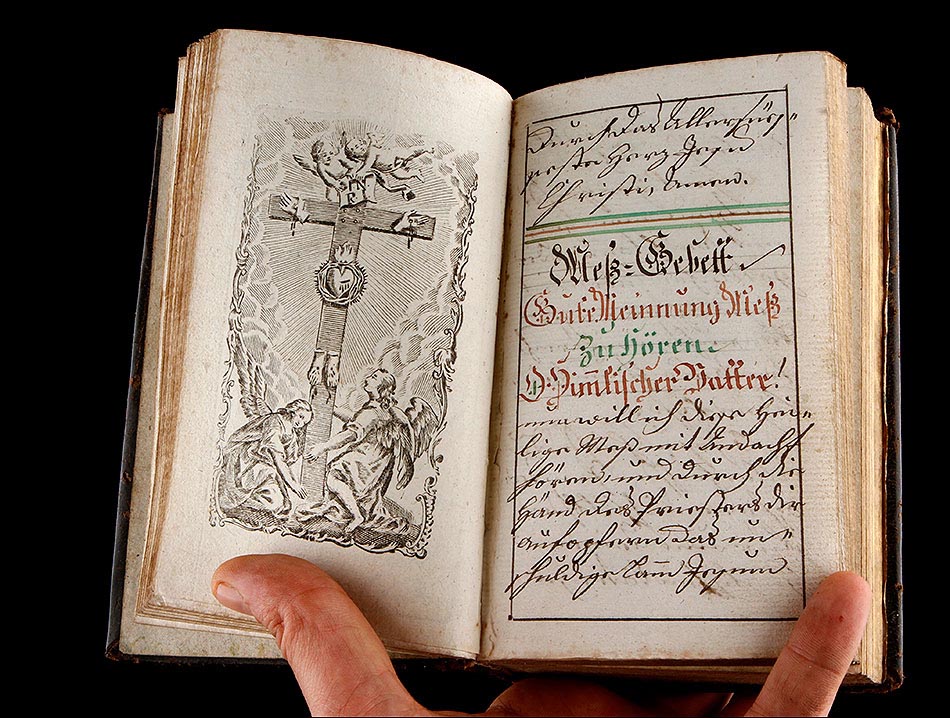 INRI
Durch das Allersüs=
seste Herz Jesu
Christi, Amen.
Meß=Gebett
Gute Meinnung Meß
Zu hören.
O Himlischer Vatter!
nun will ich diese Hei=
lige Meß mit Andacht
hören, und durch die
Händ des Priesters dir
aufopfern das un=
schuldige Lam̅ Jesum